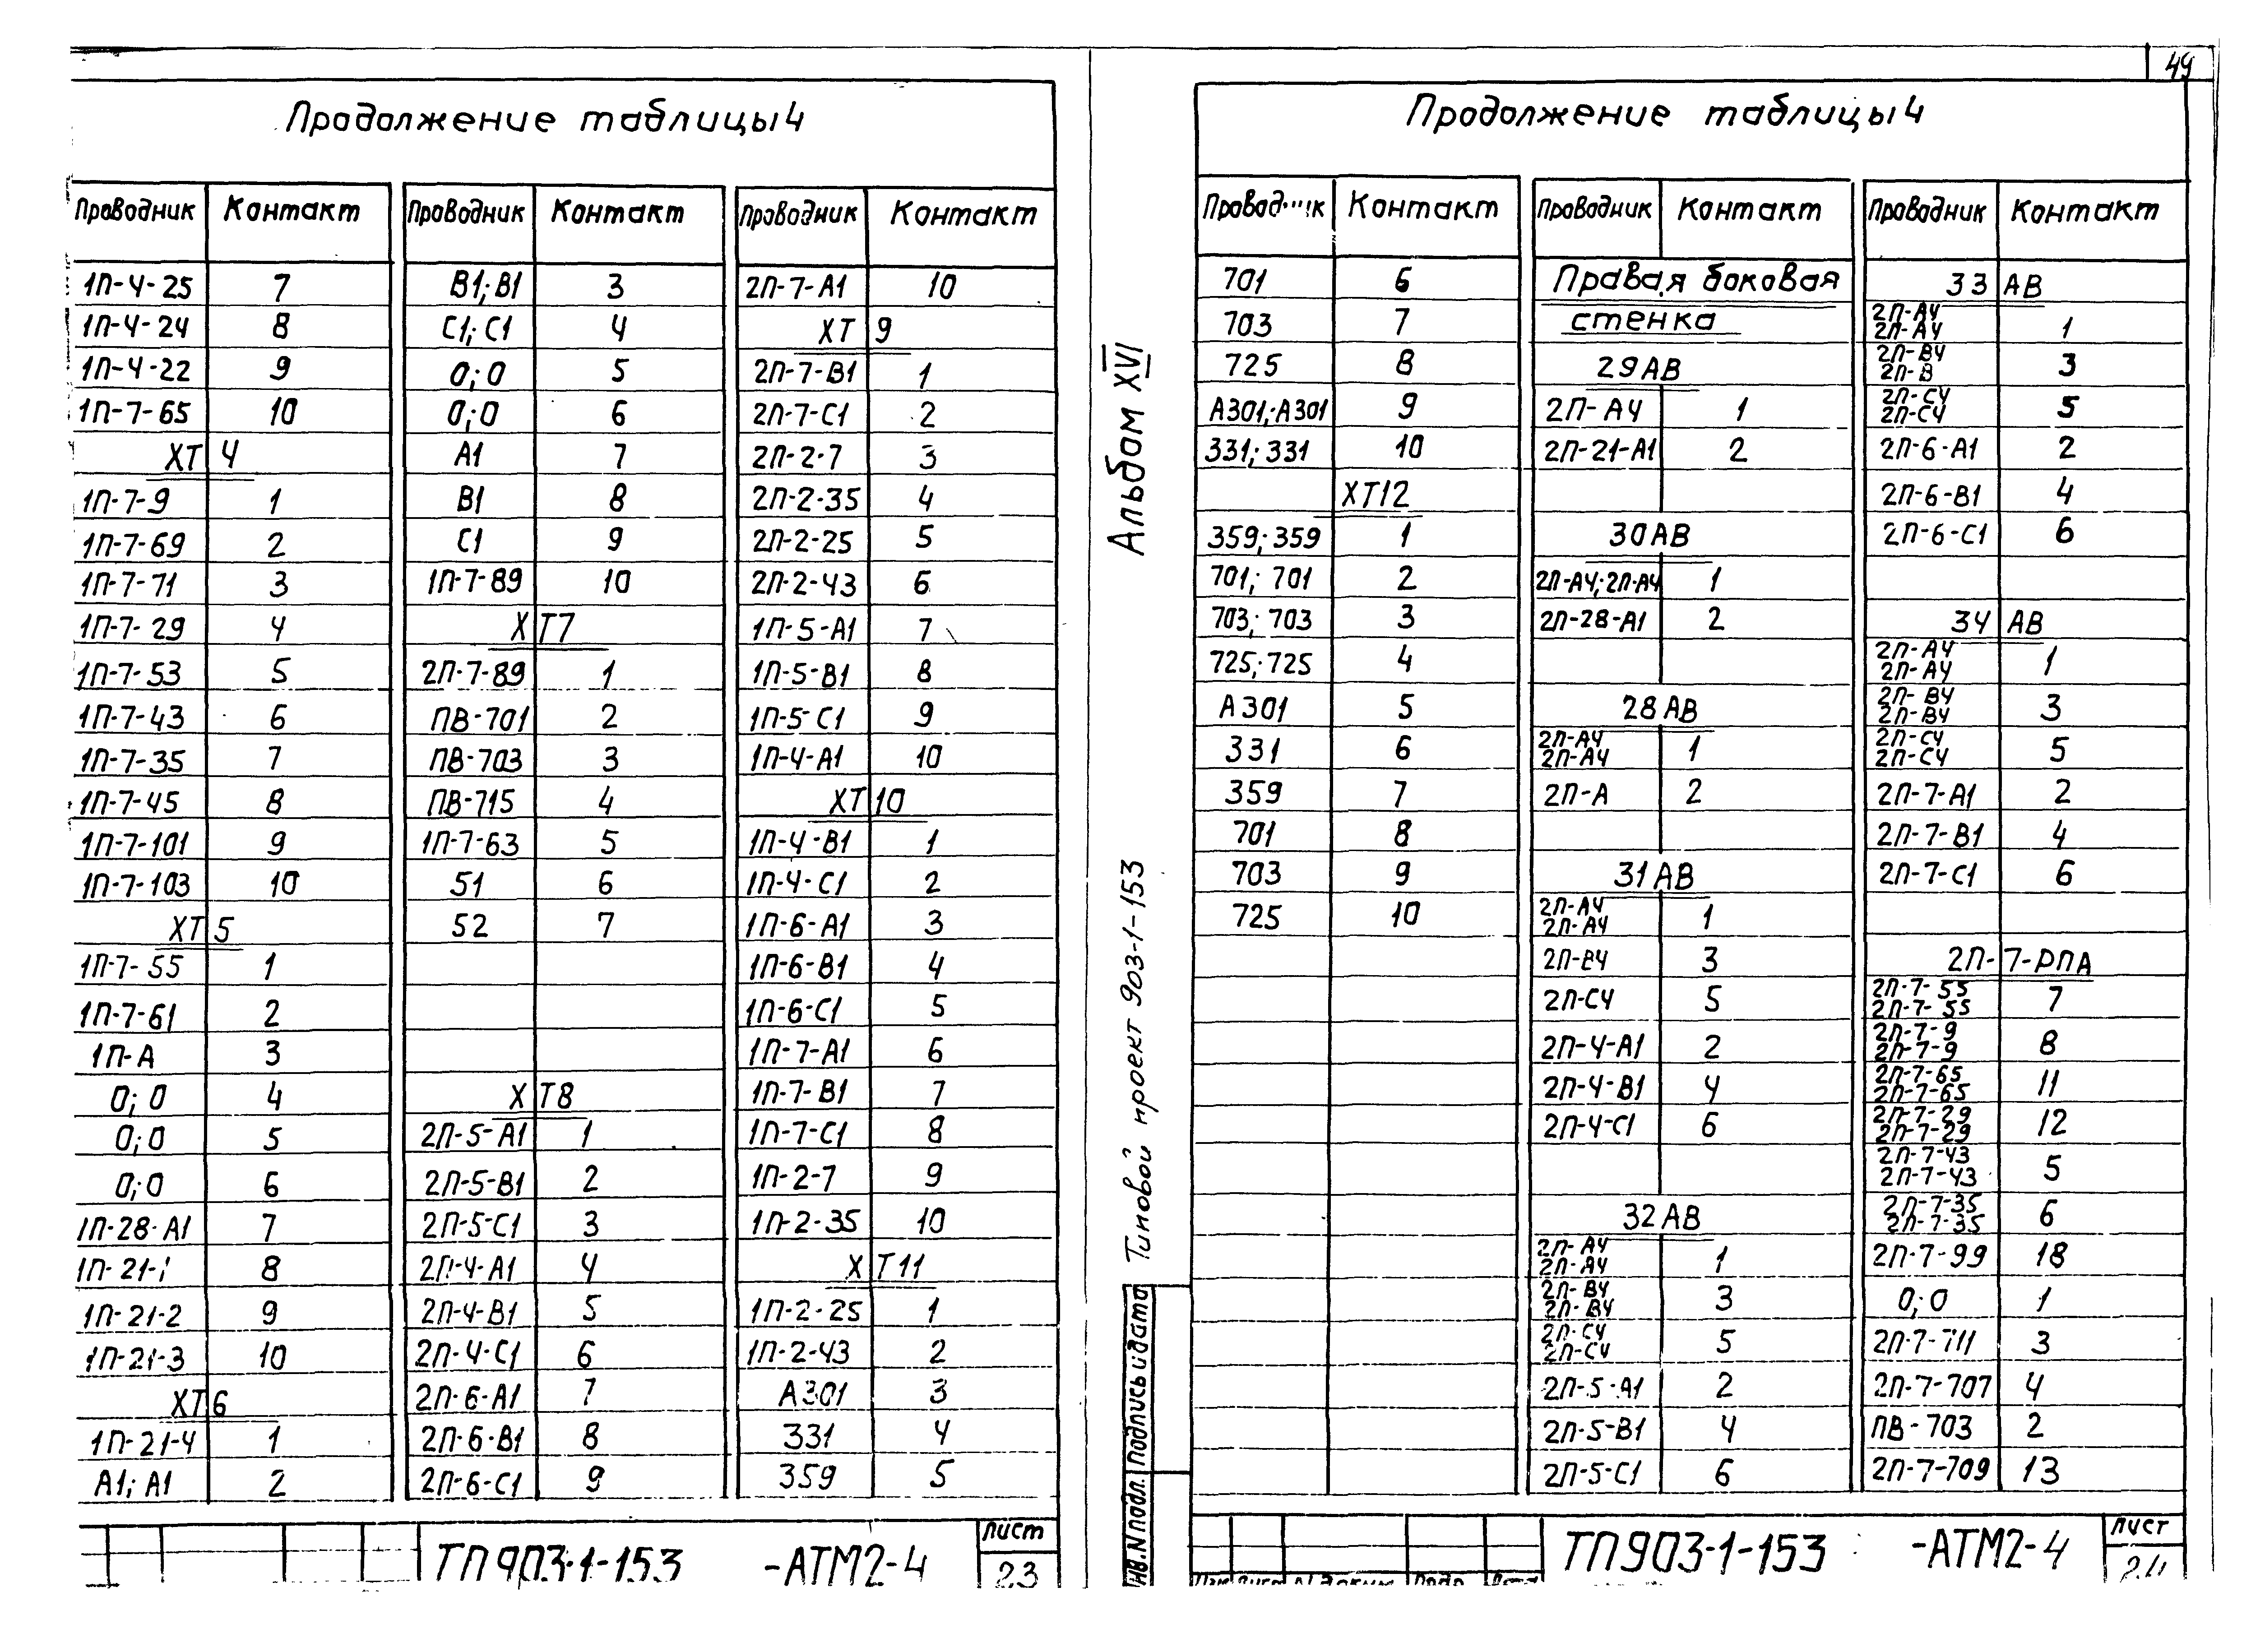 49
Продолжение таблицы 4
Проводник Контакт
1П-4-25 7
1П-4-24 8
1П-4-22 9
1П-7-65 10
ХТ 4
1П-7-9 1
1П-7-69 2
1П-7-71 3
1П-7-29 4
1П-7-53 5
1П-7-43 6
1П-7-35 7
1П-7-45 8
1П-7-101 9
1П-7-103 10
ХТ 5
1П-7-55 1
1П-7-61 2
1П-А 3
0; 0 4
0; 0 5
0; 0 6
1П-28-А1 7
1П-21-1 8
1П-21-2 9
1П-21-3 10
ХТ6
1П-21-4 1
А1; А1 2
Проводник Контакт
В1; В1 3
С1; С1 4
0; 0 5
0; 0 6
А1 7
В1 8
С1 9
1П-7-89 10
ХТ7
2П-7-89 1
ПВ-701 2
ПВ-703 3
ПВ-715 4
1П-7-63 5
51 6
52 7
ХТ8
2П-5-А1 1
2П-5-В1 2
2П-5-С1 3
2П-4-А1 4
2П-4-В1 5
2П-4-С1 6
2П-6-А1 7
2П-6-В1 8
2П-6-С1 9
Проводник Контакт
2П-7-А1 10
ХТ 9
2П-7-В1 1
2П-7-С1 2
2П-2-7 3
2П-2-35 4
2П-2-25 5
2П-2-43 6
1П-5-А1 7
1П-5-В1 8
1П-5-С1 9
1П-4-А1 10
ХТ 10
1П-4-В1 1
1П-4-С1 2
1П-6-А1 3
1П-6-В1 4
1П-6-С1 5
1П-7-А1 6
1П-7-В1 7
1П-7-С1 8
1П-2-7 9
1П-2-35 10
ХТ11
1П-2-25 1
1П-2-43 2
А301 3
331 4
359 5
ТП903-1-153 -АТМ2-4
Лист
23
Альбом XVI
Типовой проект 903-1-153
Подпись и дата
Инв.N подл.
Продолжение таблицы 4
Проводник Контакт
701 6
703 7
725 8
А301; А301 9
331; 331 10
ХТ12
359; 359 1
701; 701 2
703; 703 3
725; 725 4
А301 5
331 6
359 7
701 8
703 9
725 10
Проводник Контакт
Правая боковая
стенка
29АВ
2П-А4 1
2П-21-А1 2
30АВ
2П-А4; 2П-А4 1
2П-28-А1 2
28АВ
2П-А4
2П-А4 1
2П-А 2
31АВ
2П-А4
2П-А4 1
2П-В4 3
2П-С4 5
2П-4-А1 2
2П-4-В1 4
2П-4-С1 6
32АВ
2П-А4
2П-А4 1
2П-В4
2П-В4 3
2П-С4
2П-С4 5
2П-5-А1 2
2П-5-В1 4
2П-5-С1 6
Проводник Контакт
33 АВ
2П-А4
2П-А4 1
2П-В4
2П-В 3
2П-С4
2П-С4 5
2П-6-А1 2
2П-6-В1 4
2П-6-С1 6
34 АВ
2П-А4
2П-А4 1
2П-В4
2П-В4 3
2П-С4
2П-С4 5
2П-7-А1 2
2П-7-В1 4
2П-7-С1 6
2П-7-РПА
2П-7-55
2П-7-55 7
2П-7-9
2П-7-9 8
2П-7-65
2П-7-65 11
2П-7-29
2П-7-29 12
2П-7-43
2П-7-43 5
2П-7-35
2П-7-35 6
2П-7-99 18
0; 0 1
2П-7-711 3
2П-7-707 4
ПВ-703 2
2П-7-709 13
ТП903-1-153 -АТМ2-4
Лист
24